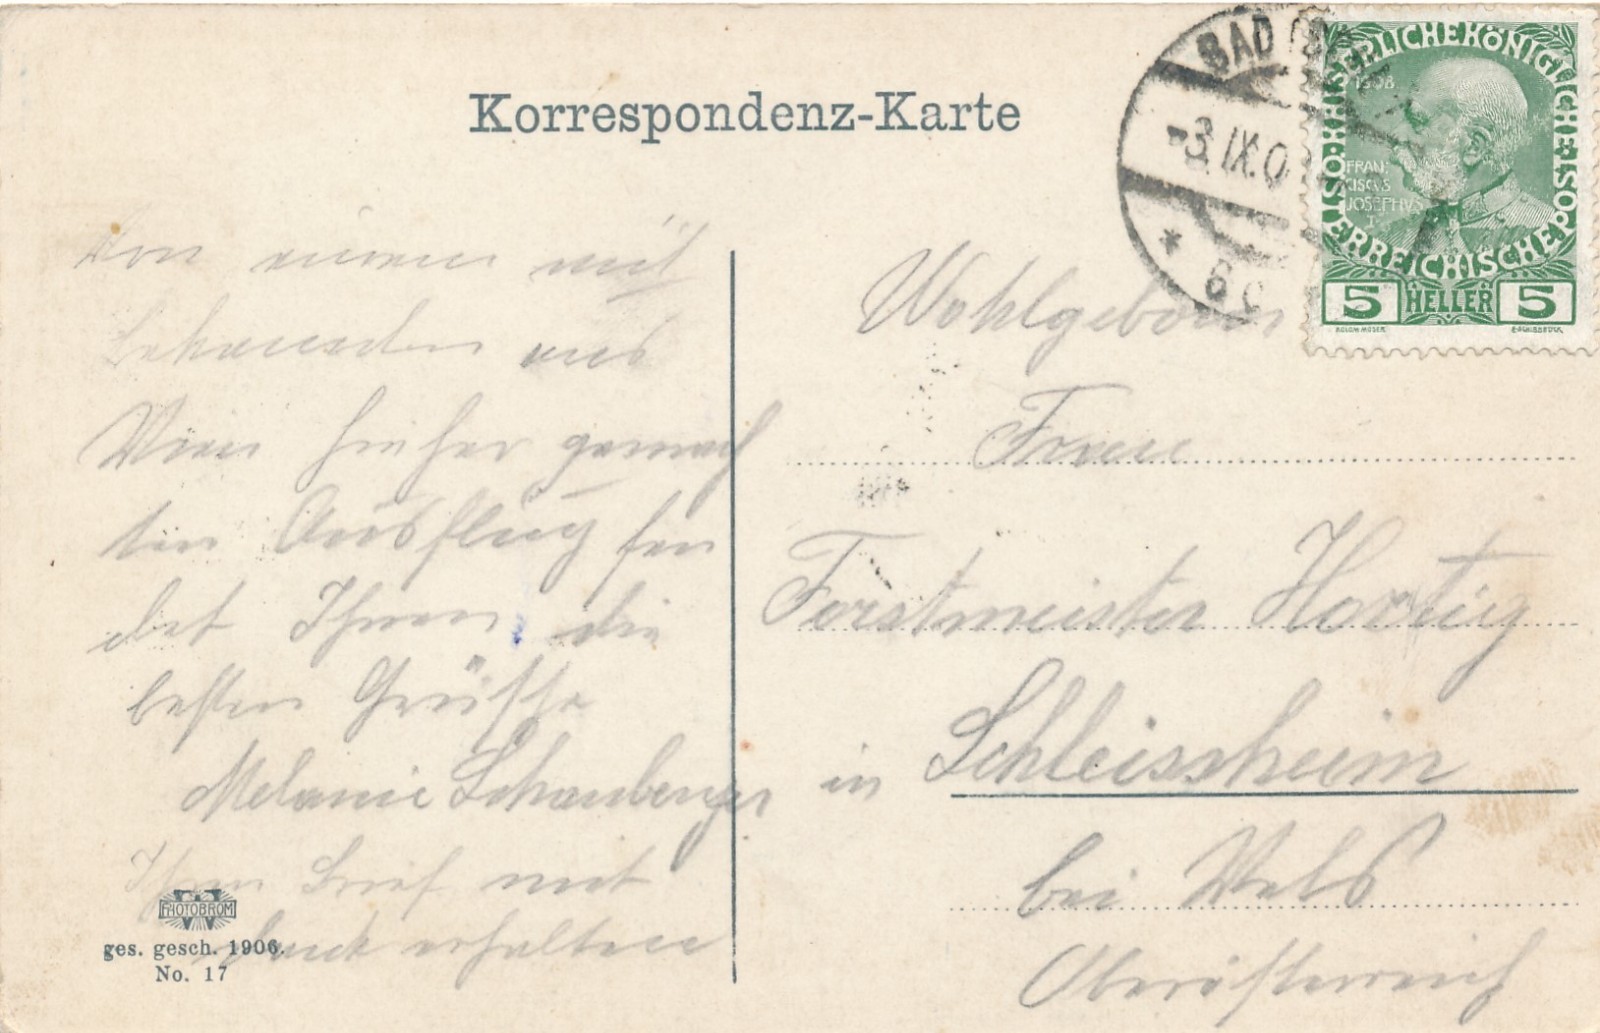 Korrespondenz-Karte
BAD
-3. IX. 0
* 6
KAISERLICHE KÖNIGLICHE ÖSTERREICHISCHE POST
1908
FRAN
CISCVS
JOSEPHVS
I
5 HELLER 5
KOLOM. MOSER
Von einem mit
Bekannten aus
Wien hieher gemach
ten Ausflug sen
det Ihnen die
besten Grüsse
Melanie Schauberger
Ihren Brief mit
Dank erhalten
Wohlgeboren
Frau
Forstmeister Hartig
in Schleissheim
bei Wels
Oberösterreich
PHOTOBROM
W
ges. gesch. 1906.
No. 17